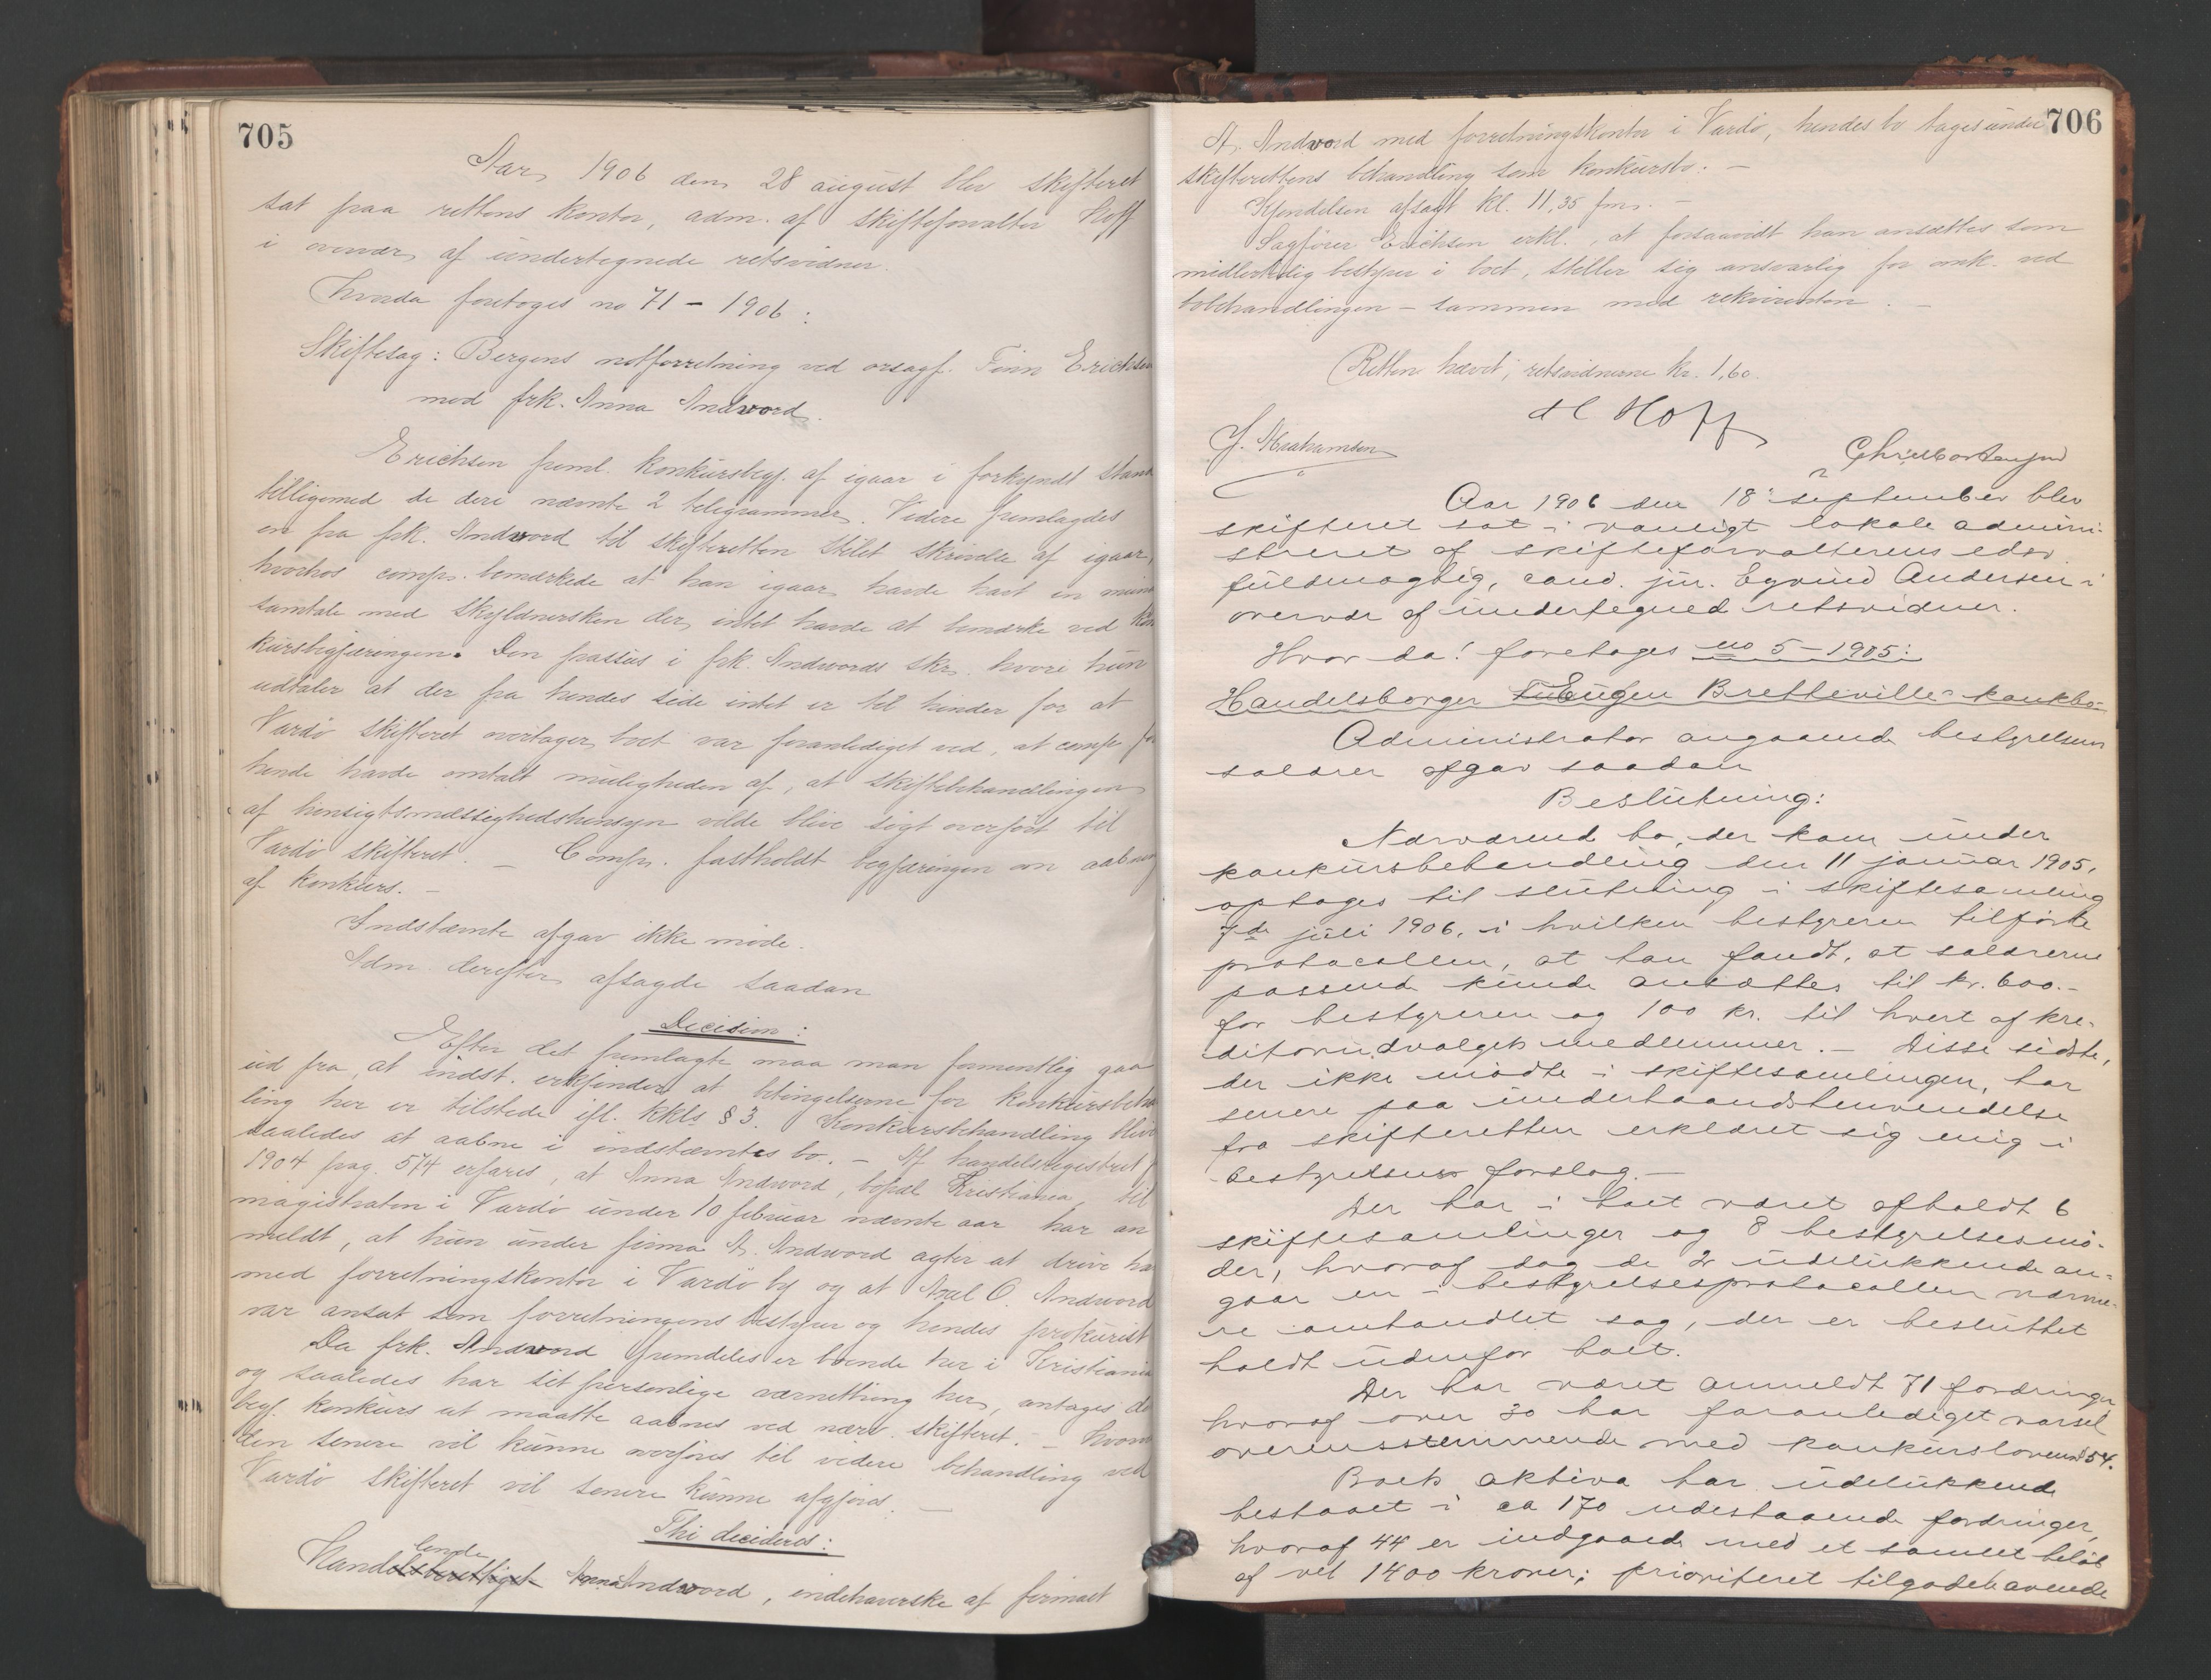 705
Aar 1906 den 28 august blev skifteret
sat paa rettens kontor, adm. af skifteforvalter Hoff
i overvær af undertegnede retsvidner.
Hvorda foretoges no 71 – 1906:
Skiftesag: Bergens notforretning ved orsagf. Finn Erichsen
mod frk. Anna Andvord.
Erichsen freml. konkursbegj. af igaar i forkyndt stand
tilligemed de deri nævnte 2 telegrammer. Videre fremlagdes
en fra frk. Andvord til skifteretten stilet skrivelse af igaar,
hvorhos comp. bemærkede at han igaar havde havt en
samtale med skyldnersken der intet havde at bemærke ved kon
kursbegjæringen. Den passus i frk. Andvords skr. hvori hun
udtaler at der fra hendes side intet er til hinder for at
Vardø skifteret overtager boet var foranlediget ved, at comp. for
hende havde omtalt muligheden af, at skiftebehandlingen
af hensigtsmæssighedshensyn vilde blive søgt overført til
Vardø skifteret. – Comp. fastholdt begjæringen om aabning
af konkurs. –
Indstævnte afgav ikke møde.
Adm. derefter afsagde saadan
Decision:
Efter det fremlagte maa man formentlig gaa
ud fra, at indst. erkjender at betingelserne for konkursbehand
ling her er tilstede ifl. kkls § 3. Konkursbehandling bliver
saaledes at aabne i indstævntes bo. – Af handelsregistret
1904 pag. 574 erfares, at Anna Andvord, bopæl Kristiania, til
magistraten i Vardø under 10 februar nævnte aar har an
meldt, at hun under firma A. Andvord agter at drive ha
med forretningskontor i Vardø by og at Axel O. Andvord
var ansat som forretningens bestyrer og hendes prokurist
Da frk. Andvord fremdeles er boende her i Kristiania
og saaledes har sit personlige værnething her, antages de
begj. konkurs at maatte aabnes ved nærv. skifteret. – Hvorvidt
den senere vil kunne overføres til videre behandling ved
Vardø skifteret vil senere kunne afgjøres. –
Thi decideres:
lende
Handelsberettiget Anna Andvord, indehaverske af firmaet
706
A. Andvord med forretningskontor i Vardø, hendes bo tages under
skifterettens behandling som konkursbo. –
Kjendelsen afsagt kl. 11,35 fm. –
Sagfører Erichsen erkl., at forsaavidt han ansættes som
midlertidig bestyrer i boet, stiller sig ansvarlig for omk. ved
bobehandlingen – sammen med rekvirenten. –
Retten hævet, retsvidnerne kr. 1,60.
Hoff
Aar 1906 den 18 september blev
skifteret sat i vanligt lokale admini-
streret af skifteforvalterens edsv.
fuldmægtig, cand. jur. Eyvind Andersen i
overvær af undertegned retsvidner.
Hvor da! foretages no 5 – 1905:
Handelsborger Eugen Bretteville konkbo–
Administrator angaaende bestyrelsens
salærer afgav saadan
Beslutning:
Nærværend bo, der kom under
konkursbehandling den 11 januar 1905,
optages til slutning i skiftesamling
7de juli 1906, i hvilken bestyreren tilførte
protocollen, at han fandt, at salærerne
passende kunde ansættes til kr. 600.–
for bestyreren og 100 kr. til hvert af kre-
ditorudvalgets medlemmer. – Disse sidste,
der ikke mødte i skiftesamlingen, har
senere paa underhaandshenvendelse
fra skifteretten erklæret sig enig i
bestyrelsens forslag. –
Der har i boet været afholdt 6
skiftesamlinger og 8 bestyrelsesmø-
der, hvoraf dog de 2 udelukkende an-
gaar en i bestyrelsesprotocollen nærme-
re omhandlet sag, der er besluttet
holdt udenfor boet.
Der har været anmeldt 71 fordringer
hvoraf over 30 har foranlediget varsel
overensstemmende med konkurslovens § 54.
Boets aktiva har udelukkende
bestaaet i ca 170 udestaaende fordringer,
hvoraf 44 er indgaaede med et samlet beløb
af vel 1400 kroner; prioriteret tilgodehavende